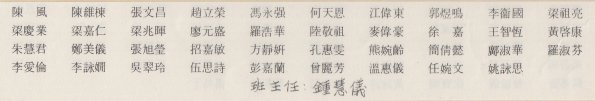 陳　風　陳維棟　張文昌　趙立榮　馮永强　何天恩　江偉東　郭煜鳴　李衞國　梁祖亮
梁慶業　梁嘉仁　梁兆暉　廖元盛　羅浩華　陸敬祖　麥偉豪　徐　嘉　王智恆　黃啓康
朱慧君　鄭美儀　張旭瑩　招嘉敏　方靜妍　孔惠雯　熊婉齡　簡倩懿　鄺淑華　羅淑芬
李愛倫　李詠嫺　吳翠玲　伍思詩　彭嘉蘭　曾麗芳　溫惠儀　任婉文　姚詠思
班主任：鍾慧儀